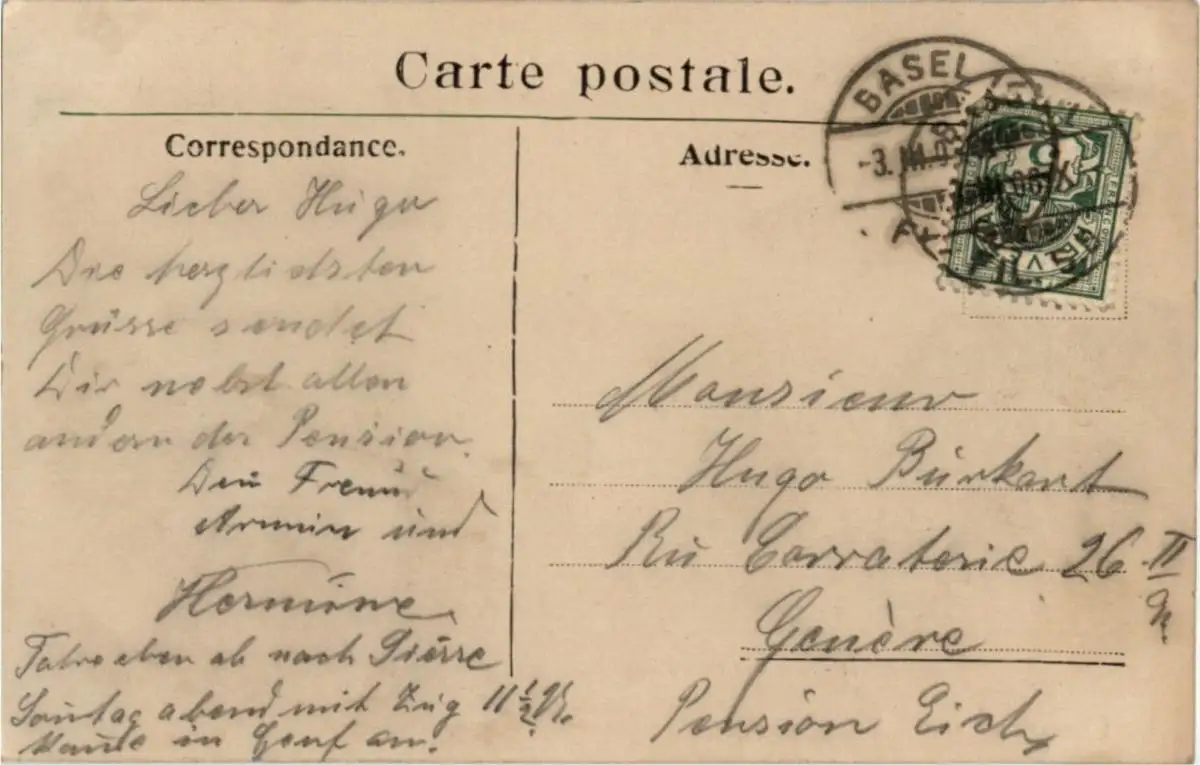 Carte postale.
Correspondance.
Lieber Hugo
Die herzlichsten
Grüsse sendet
Dir nebst allen
andern der Pension.
Dein Freund
Armin und
Hermine.
Fahre eben ab nach
Sontag abend mit Zug 11 1/2
in Genf an.
Adresse.
BASEL
Monsieur
Hugo Burkart
Ru Corraterie 26 II
Genève
Pension